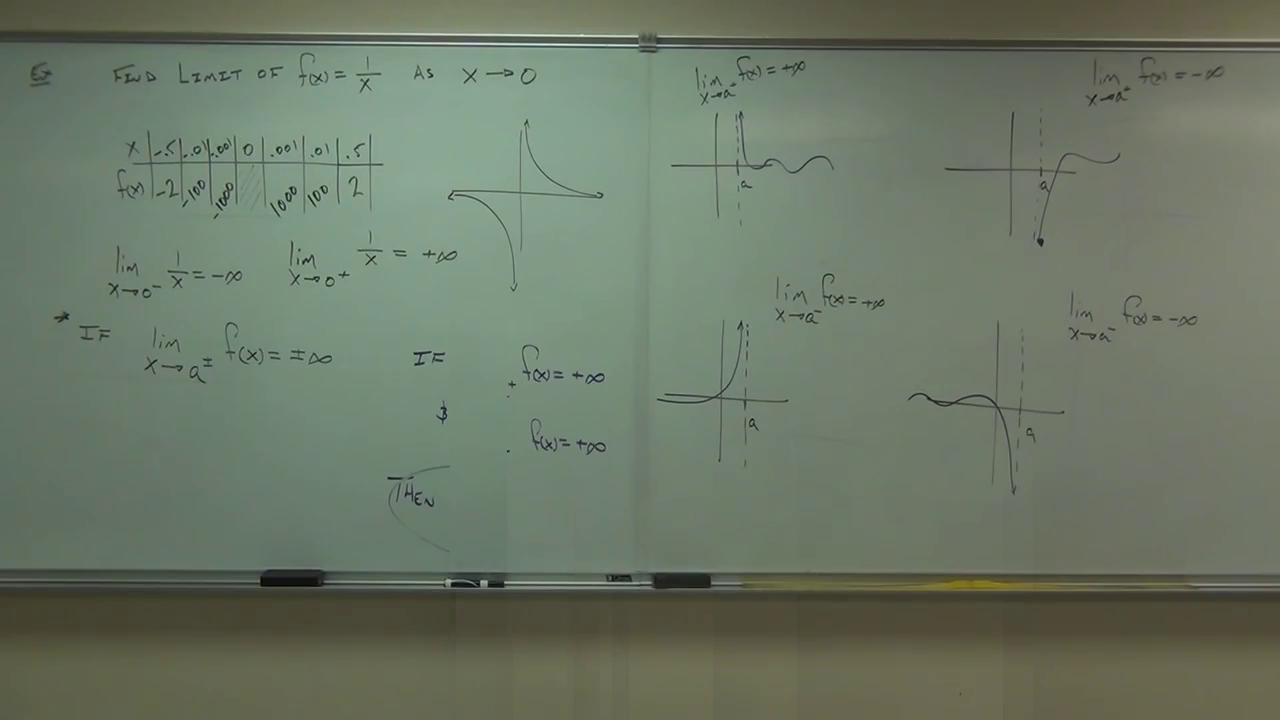 Ex FIND LIMIT OF f(x) = 1/x AS x → 0
x | -.5 | -.01 | -.001 | 0 | .001 | .01 | .5
f(x) | -2 | -100 | -1000 | | 1000 | 100 | 2
lim x→0⁻ 1/x = -∞ lim x→0⁺ 1/x = +∞
* IF lim x→a± f(x) = ±∞
IF + f(x) = +∞
&
f(x) = +∞
THEN
lim x→a⁺ f(x) = +∞
a
lim x→a⁺ f(x) = -∞
a
lim x→a⁻ f(x) = +∞
a
lim x→a⁻ f(x) = -∞
a